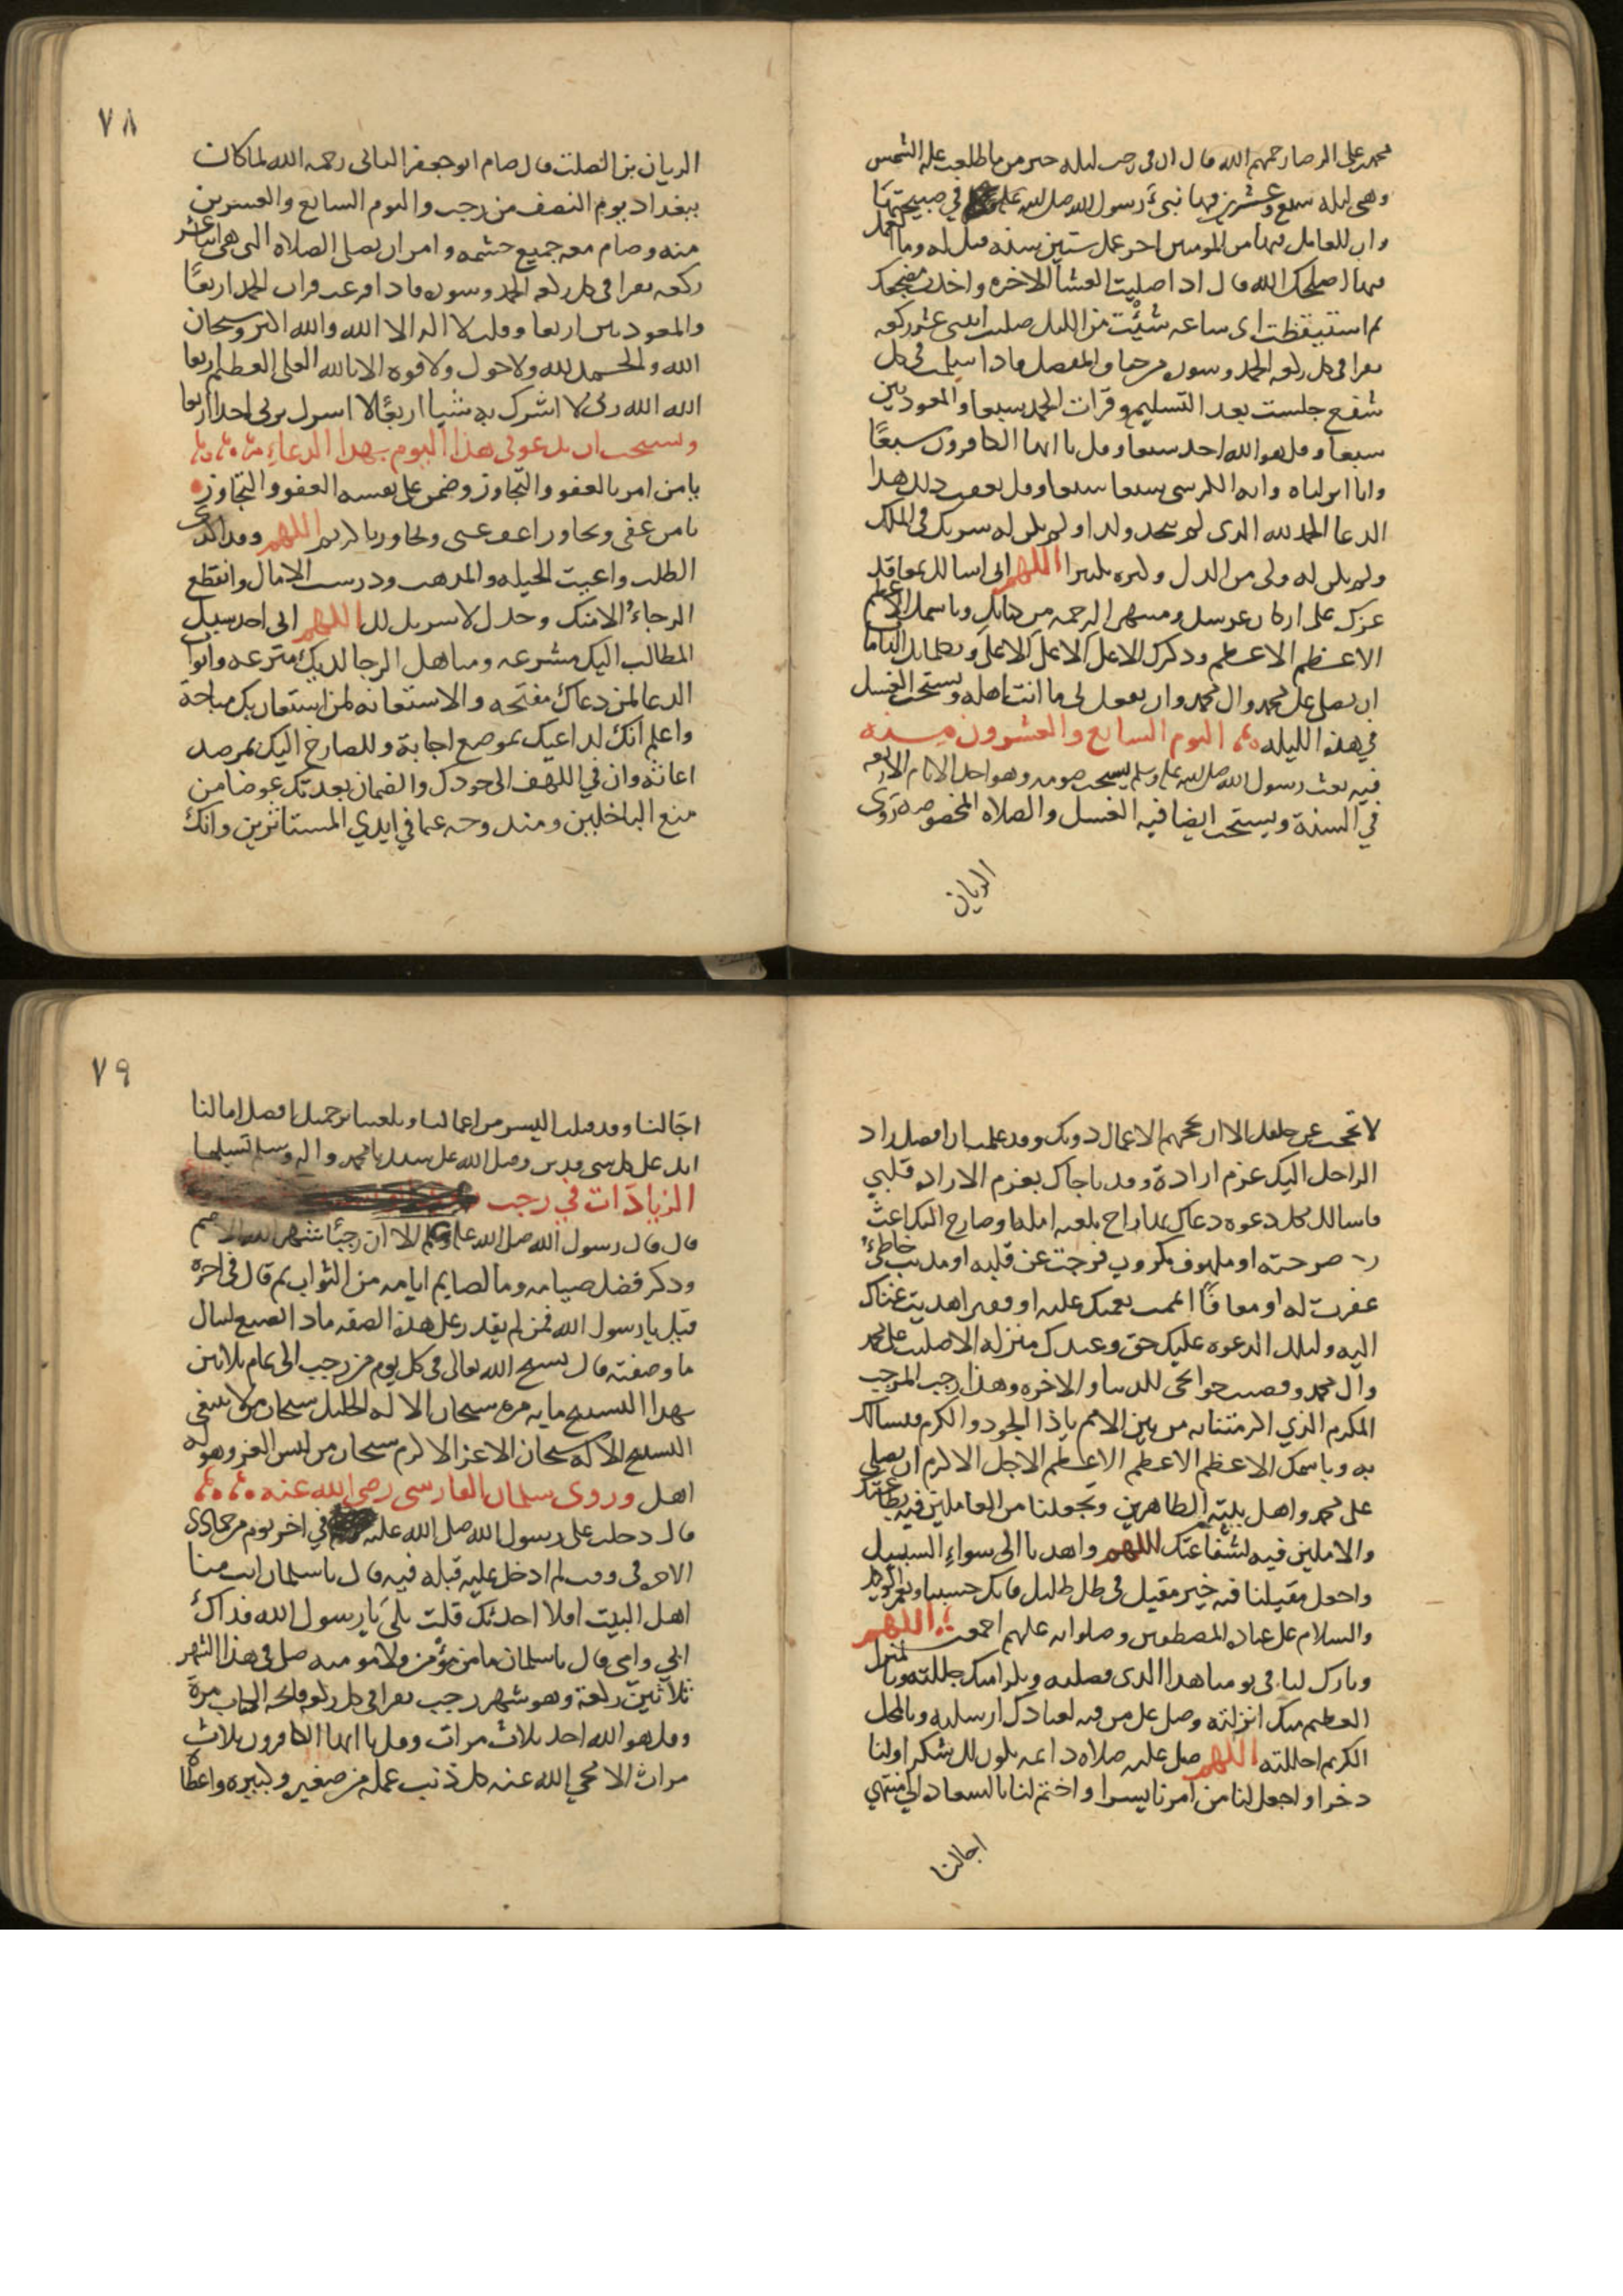 محمد بن على الرضا رحمهم الله قال ان فى رجب ليله خير من ما طلعت عليه الشمس
وهى ليله سبع وعشرين فيها نبئ رسول الله صلى الله عليه في صبيحتها
وان للعامل فيها من المومنين اجر عمل ستين سنه قيل له وما العمل
فيها اصلحك الله قال اذا صليت العشا الاخره واخذت مضجعك
ثم استيقظت اى ساعه شئت من الليل صليت اثنى عشر ركعه
تقرا فى كل ركعه الحمد وسوره من خفاف المفصل فاذا سلمت فى كل
شفع جلست بعد التسليم وقرات الحمد سبعا والمعوذتين
سبعا وقل هو الله احد سبعا وقل يا ايها الكافرون سبعًا
وانا انزلناه وايه الكرسى سبعا سبعا وقل بعقب ذلك هذا
الدعا الحمد لله الذى لم يتخذ ولدا ولم يكن له شريك فى الملك
ولم يكن له ولى من الذل وكبره تكبيرا اللهم انى اسالك بمعاقد
عزك على اركان عرشك ومنتهى الرحمه من كتابك وباسمك الاعظم
الاعظم الاعظم وذكرك الاعلى الاعلى الاعلى وبكلماتك التاما
ان تصلى على محمد وال محمد وان تفعل لى ما انت اهله ويستحب الغسل
في هذه الليله اليوم السابع والعشرون منه
فيه بعث رسول الله صلى الله عليه وسلم يستحب صومه وهو احد الايام الاربعه
في السنة ويستحب ايضا فيه الغسل والصلاه المخصوصه روى
الريان
٧٨
الريان بن الصلت قال صام ابو جعفر الثانى رحمه الله لما كان
ببغداد يوم النصف من رجب واليوم السابع والعشرين
منه وصام معه جميع حشمه وامر ان يصلى الصلاه التى هى اثنتا عشر
ركعه تقرا فى كل ركعه الحمد وسوره فاذا فرغت قرات الحمد اربعًا
والمعوذتين اربعا وقلت لا اله الا الله والله اكبر وسبحان
الله والحمد لله ولا حول ولا قوه الا بالله العلى العظيم اربعا
الله الله ربى لا اشرك به شيا اربعًا لا اشرك بربى احدا اربعا
ويستحب ان يدعو فى هذا اليوم بهذا الدعاء
يا من امر بالعفو والتجاوز وضمن على نفسه العفو والتجاوز
يا من عفى وتجاوز اعف عنى وتجاوز يا كريم اللهم وقد اكدى
الطلب واعيت الحيله والمذهب ودرست الامال وانقطع
الرجاء الا منك وحدك لا شريك لك اللهم انى اجد سبل
المطالب اليك مشرعه ومناهل الرجا لديك مترعه وابواب
الدعا لمن دعاك مفتحه والاستعانه لمن استعان بك مباحة
واعلم انك لداعيك بموضع اجابة وللصارخ اليك بمرصد
اعاثة وان في اللهف الى جودك والضمان بعدتك عوضا من
منع الباخلين ومندوحه عما في ايدي المستاثرين وانك
لا تحتجب عن خلقك الا ان تحجبهم الاعمال دونك وقد علمت ان افضل زاد
الراحل اليك عزم ارادة وقد ناجاك بعزم الاراده قلبي
فاسالك بكل دعوه دعاك بها راج بلغته امله او صارخ اليك اغثت
صرخته او ملهوف مكروب فرجت عن قلبه او مذنب خاطئ
غفرت له او معافًا اتممت نعمتك عليه او فقير اهديت غناك
اليه ولتلك الدعوه عليك حق وعندك منزله الا صليت على محمد
وال محمد وقضيت حوائجى للدنيا والاخره وهذا رجب المرجب
المكرم الذي اكرمتنا به من بين الامم ياذا الجود والكرم فنسالك
به وباسمك الاعظم الاعظم الاعظم الاجل الاكرم ان تصلي
على محمد واهل بيته الطاهرين وتجعلنا من العاملين فيه بطاعتك
والاملين فيه لشفاعتك اللهم واهدنا الى سواء السبيل
واجعل مقيلنا فيه خير مقيل فى ظل ظليل فانك حسبنا ونعم الوكيل
والسلام على عباده المصطفين وصلواته عليهم اجمعين اللهم
وبارك لنا فى يومنا هذا الذى فضلته وبكرامتك جللته وبالمنزل
العظيم منك انزلته وصل على من فيه لعبادك ارسلته وبالمحل
الكريم احللته اللهم صل عليه صلاه دائمه تكون لك شكرا ولنا
ذخرا واجعل لنا من امرنا يسرا واختم لنا بالسعاده الى منتهي
اجالنا
٧٩
اجالنا وقد قبلت اليسير من اعمالنا وبلغتنا برحمتك افضل امالنا
انك على كل شى قدير وصلى الله على سيدنا محمد واله وسلم تسليما
الزيادات في رجب
قال قال رسول الله صلى الله عليه وسلم الا ان رجبًا شهر الله الاصم
وذكر فضل صيامه وما لصايم ايامه من الثواب ثم قال فى اخره
قيل يا رسول الله فمن لم يقدر على هذه الصفه ماذا يصنع لينال
ما وصفته قال يسبح الله تعالى فى كل يوم من رجب الى تمام ثلاثين
بهذا التسبيح مايه مره سبحان الاله الجليل سبحان من لا ينبغى
التسبيح الا له سبحان الاعز الاكرم سبحان من لبس العز وهو له
اهل وروى سلمان الفارسى رضى الله عنه
قال دخلت على رسول الله صلى الله عليه في اخر يوم من جمادى
الاخره فى وقت لم ادخل عليه قبله فيه قال يا سلمان انت منا
اهل البيت افلا احدثك قلت بلى يا رسول الله فداك
ابي وامى قال يا سلمان ما من مؤمن ولا مومنه صلى فى هذا الشهر
ثلاثين ركعة وهو شهر رجب يقرا فى كل ركعه فاتحه الكتاب مرة
وقل هو الله احد ثلاث مرات وقل يا ايها الكافرون ثلاث
مرات الا محي الله عنه كل ذنب عمله من صغير وكبيره واعطا